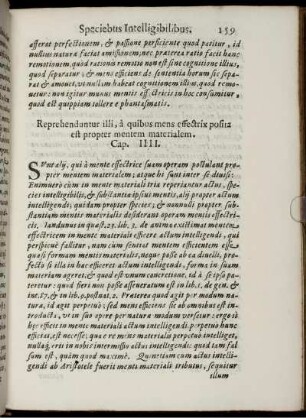 Speciebus Intelligibilibus. 159
afferat perfectionem, & passione perficiente quod patitur, id
nullius natura faciat amissionem; nec præterea ratio facit hanc
remotionem. quod rationis remotio non est sine cognitione illius,
quod separatur: & mens efficiens de sententia horum sic sepa-
rat & amouet, vt nullum habeat cognitionem illius, quod remo-
uetur: non igitur munus mentis effectricis in hoc consumitur,
quod est quippiam tollere e phantasmatis.
Reprehenduntur illi, à quibus mens effectrix posita
est propter mentem materialem.
Cap. IIII.
SVnt alij, qui à mente effectrice suam operam postulant prop
ter mentem materialem; atque hi sunt inter se diuisi:
Enimuero cùm in mente materiali tria reperiantur actus, spe-
cies intelligibilis, & substantia ipsius mentis, alij propter actum
intelligendi; quidam propter species; & nonnulli propter sub-
stantiam mentis materialis desiderant operam mentis effectri-
cis. Iandunus in quæst. 23. lib. 3. de anima existimat mentem
effectricem in mente materiali efficere actum intelligendi, qui
perspicuè fallitur, nam cum sentiat mentem efficientem esse
quasi formam mentis materialis, neque passe ab ea dauelli, pro-
fectò si illa in hac efficeret actum intelligendi, forma in suam
materiam ageret, & quod est vnum concretione, id à seipso pa-
teretur: quod fieri non posse asseneratum est in lib. 2. de gen. &
int. 57. & in lib. 9. postnat. 2. Præterea quod agit per modum na-
turæ, id aget perpetuò; sed mens efficiens sic ab omnibus est in-
troducta, vt in suo opere per naturæ modum versetur; ergo si
hoc opus efficiens in mente materiali actum intelligendi perpetuò hunc
efficiat, est necesse; qua re mens materialis perpetuò intelliget,
nullaq; erit in hac intermissio actus intelligendi: quod tam fal
sum est, quàm quod maximè. Quoniam cum actus intelli-
gendi ab Aristotele fuerit menti materiali tributus, sequitur
illum